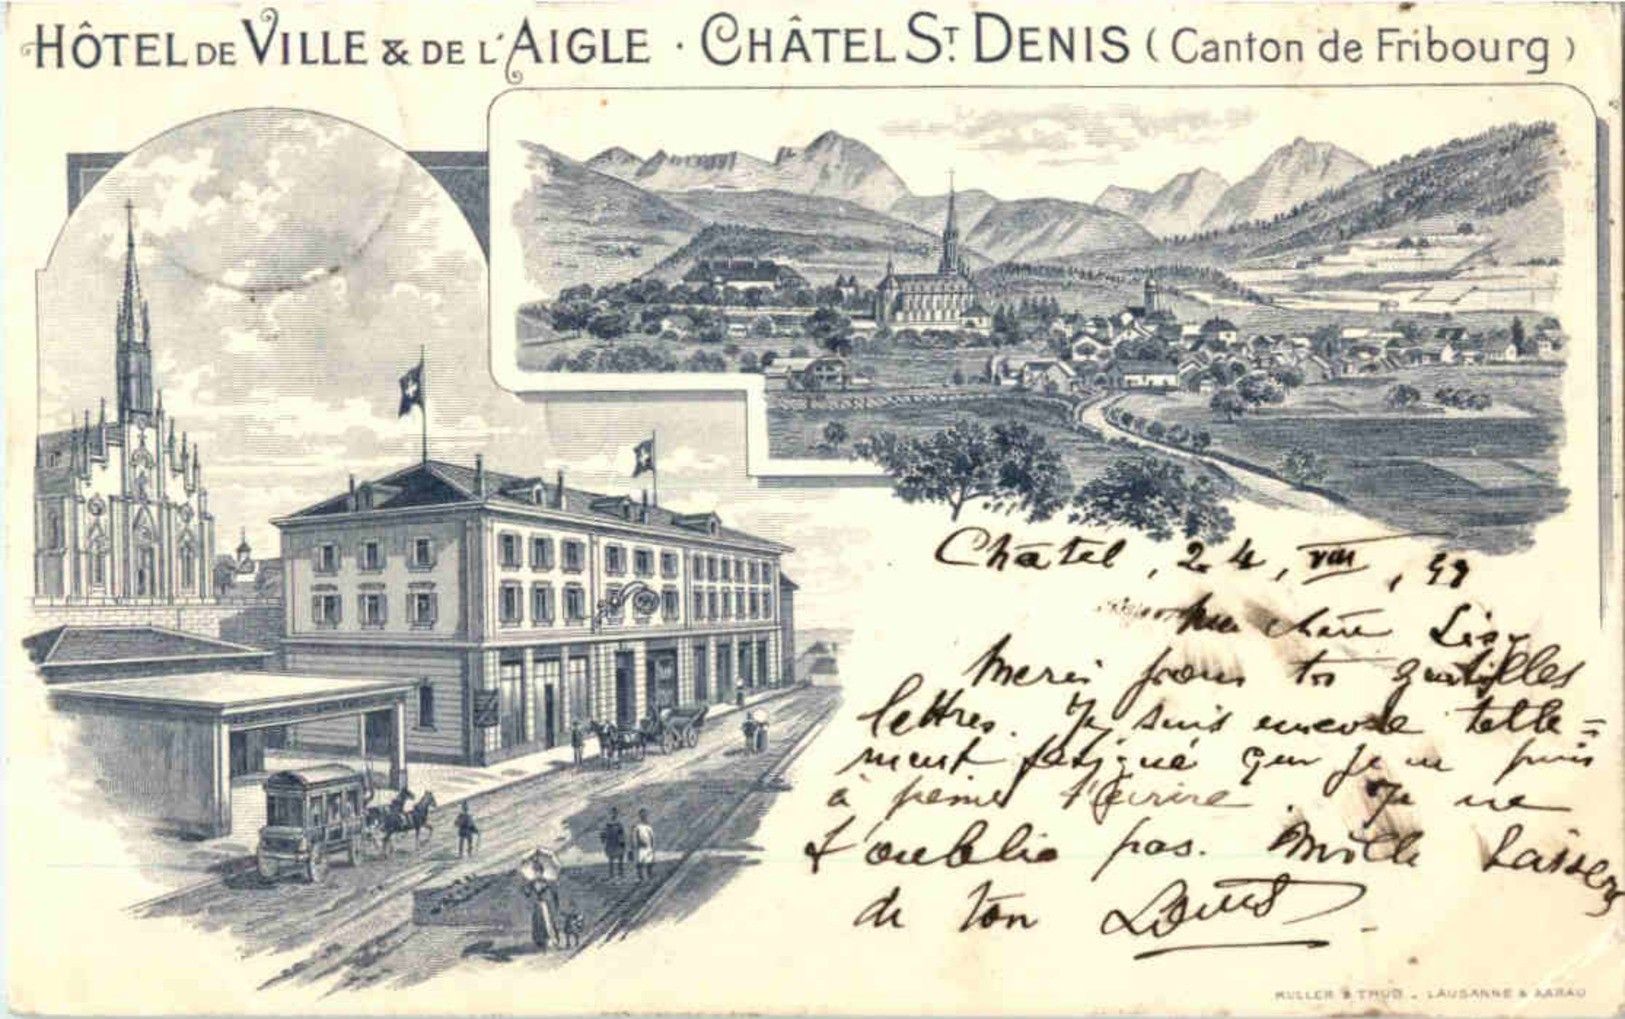 HÔTEL DE VILLE & DE L'AIGLE · CHÂTEL ST. DENIS (Canton de Fribourg)
Châtel, 24, VIII, 99
Ma chère Lisy
Merci pour tes gentilles
lettres. Je suis encore telle=
ment fatigué que je ne puis
à peine t'écrire. Je ne
t'oublie pas. Mille baisers
de ton Louis
MÜLLER & TRÜB - LAUSANNE & AARAU